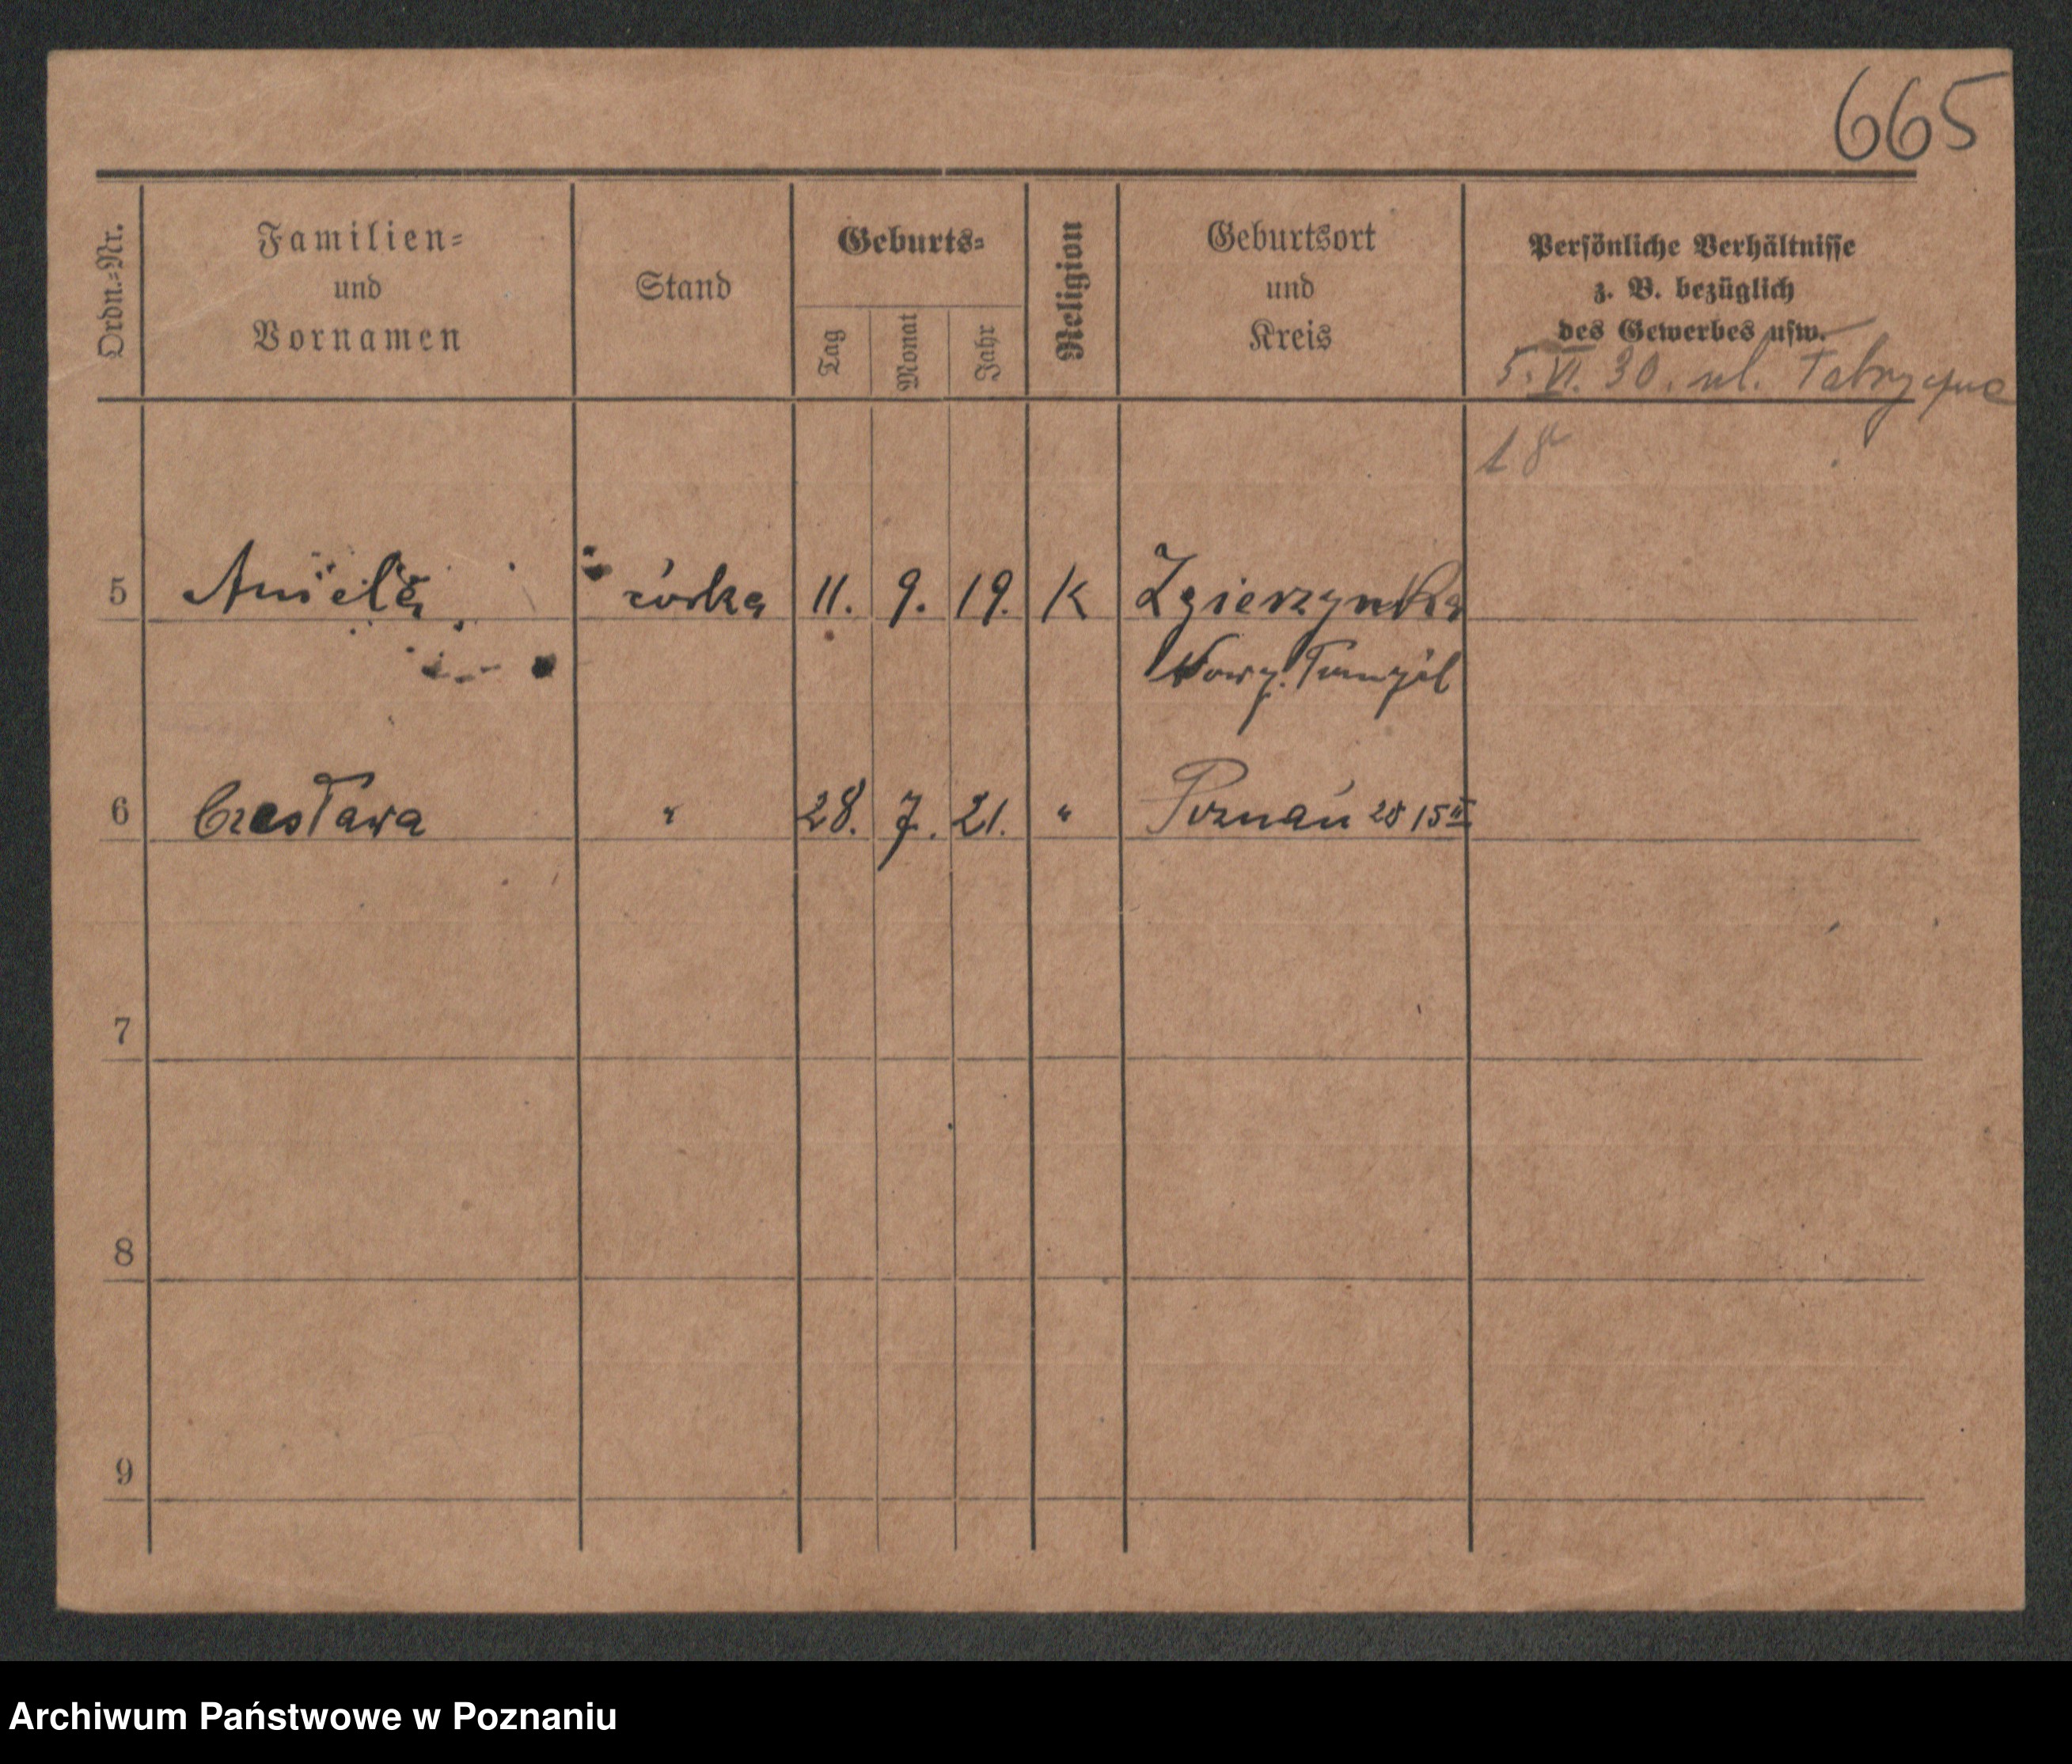 665
Ordn.=Nr.
Familien=
und
Vornamen
Stand
Geburts=
Tag
Monat
Jahr
Religion
Geburtsort
und
Kreis
Persönliche Verhältnisse
z. B. bezüglich
des Gewerbes usw.
5. VI. 30. ul. Fabryczna
18
5 Aniela córka 11. 9. 19. K Zgierzynka
Nowy Tomyśl
6 Czesława " 28. 7. 21. " Poznań 28 15 II
7
8
9
Archiwum Państwowe w Poznaniu